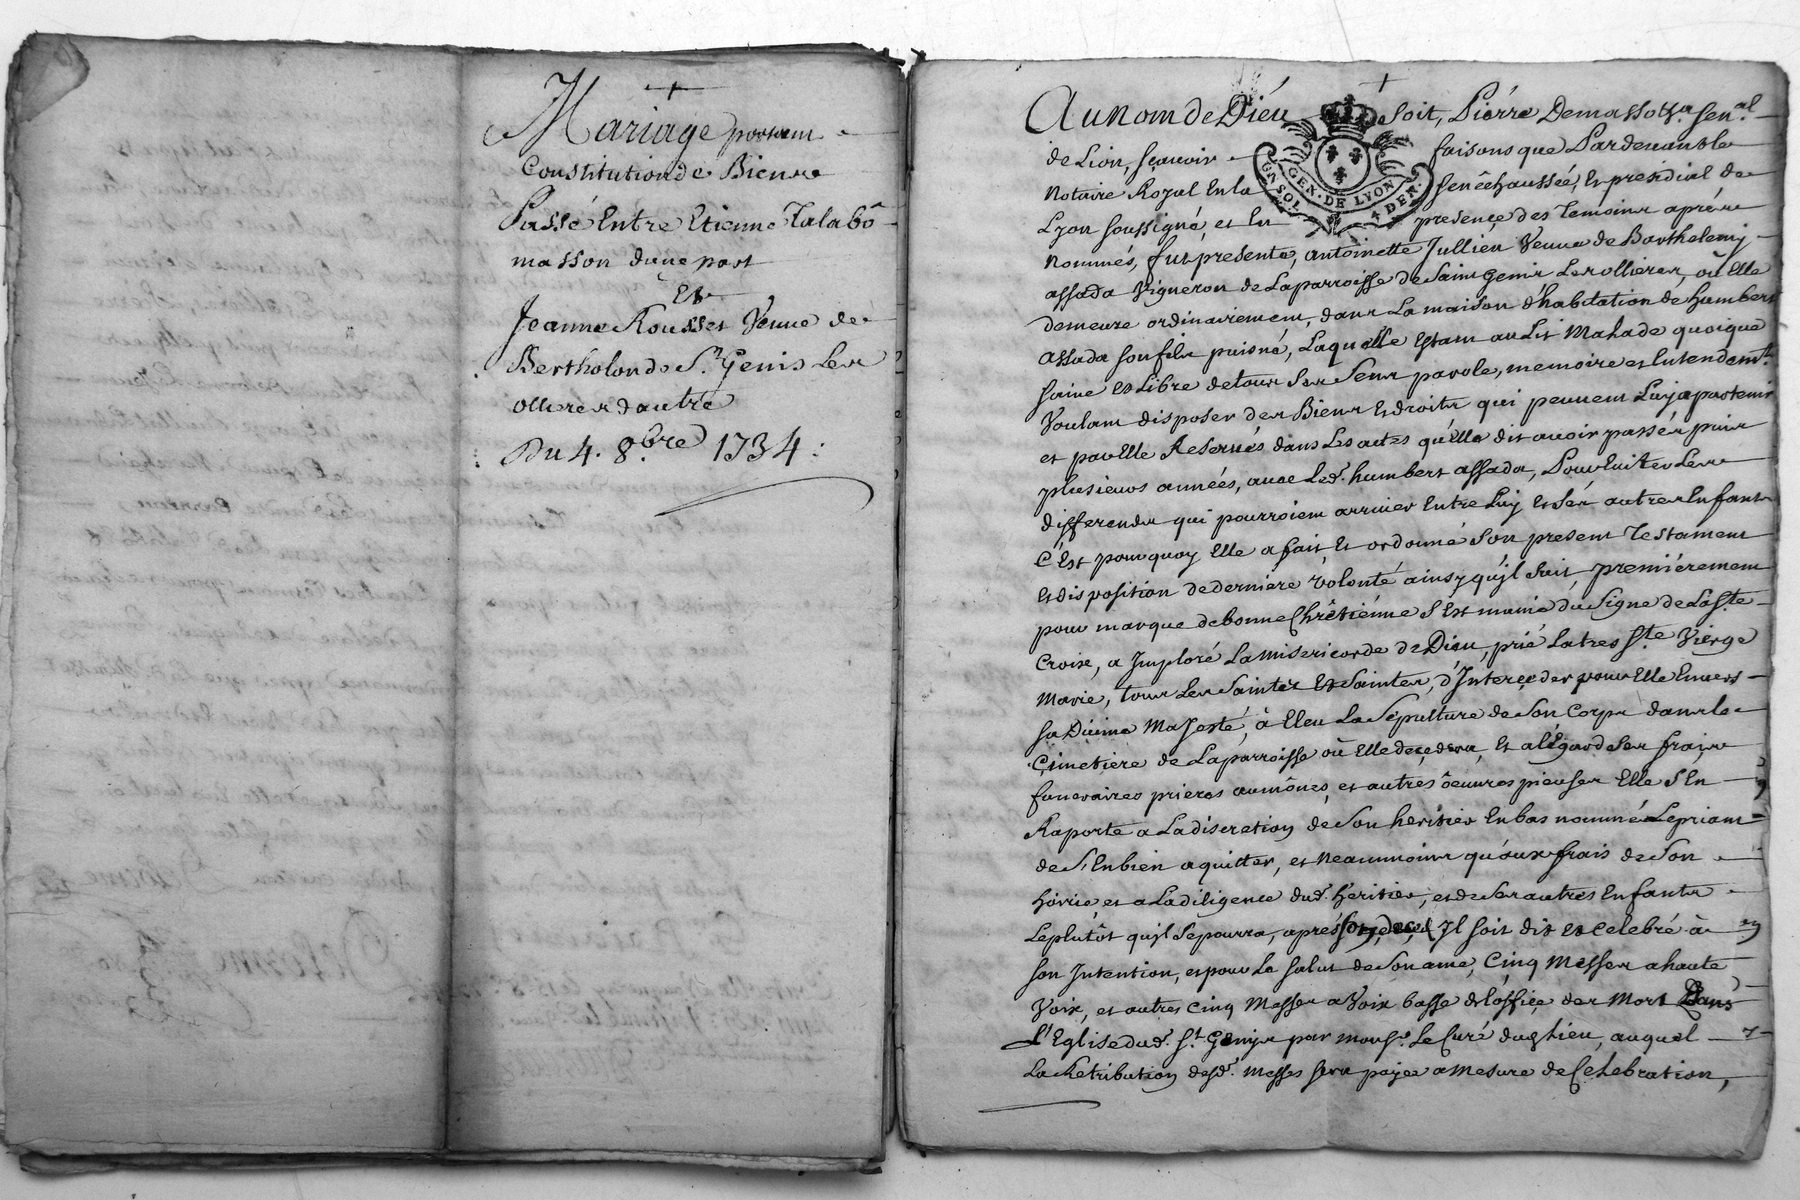 Mariage portant
Constitution de Biens
Passé Entre Etienne Talabô
masson d'une part
Et
Jeanne Rousset Veuve de
Bertholon de St. Genis Les
ollieres d'autre
Du 4. 8.bre 1734:
Au Nom de Dieu soit, Piérre Demasso Sen.al
de Lion, sçavoir faisons que Pardevant le
Notaire Royal En la Senéchaussée, Et présidial de
Lyon soussigné, et En presençe des Temoins aprés
Nommés, fut presente, antoinette Jullien Veuve de Barthelemy
assada Vigneron de La parroisse de Saint genis Les ollieres, où Elle
demeure ordinairement, dans La maison d'habitation de humbert
assada son fils puisné, Laquelle Estant au Lit Malade quoique
saine et Libre de tous Ses Sens parole, memoire et Entendem.t
Voulant disposer des Biens Et droits qui peuvent Luy apartenir
et par Elle Reservés dans Les actes qu'Elle dit avoir passés puis
plusieurs années, avec Led. humbert assada, Pour Eviter Les
differends qui pourroient arriver Entre Luy Et Ses autres Enfants
C'Est pourquoy Elle a fait Et ordonné Son present Testament
Et disposition de derniere volonté ainsy qu'jl Suit, premiérement
pour marque de bonne Chrétiénne S'Est munie du Signe de La Ste
Croix, a Jmploré La Misericorde de Dieu, prié La tres Ste Vierge
Marie, tous Les Saints Et Saintes, d'Interçeder pour Elle Envers
sa Divine Majesté, à Eleu La Sépulture de Son Corps dans le
Çimetiere de La parroisse où Elle deçedera, Et a l'égard de Ses frais
funeraires prieres aumônes, et autres oeuvres pieuses Elle S'En
Raporte a La discretion de Son héritier En bas nommé Le priant
de S'En bien aquitter, et Neanmoins qu'aux frais de Son
hoirie, et a La diligence dud. héritier, et de Ses autres Enfants
Le plutôt qu'jl Se pourra, aprés Son deçed Jl soit dit et Celebré à
son Intention, et pour Le Salut de Son ame, Cinq Messes a haute
Voix, et autres Cinq Messes a Voix basse de l'offiçe des Mort Dans
L'Eglise dud. St Genis par Monsr. Le Curé dud Lieu, auquel
La Retribution desd. Messes Sera payée a Mesure de Celebration,
GEN. DE LYON
UN SOL 4 DEN.